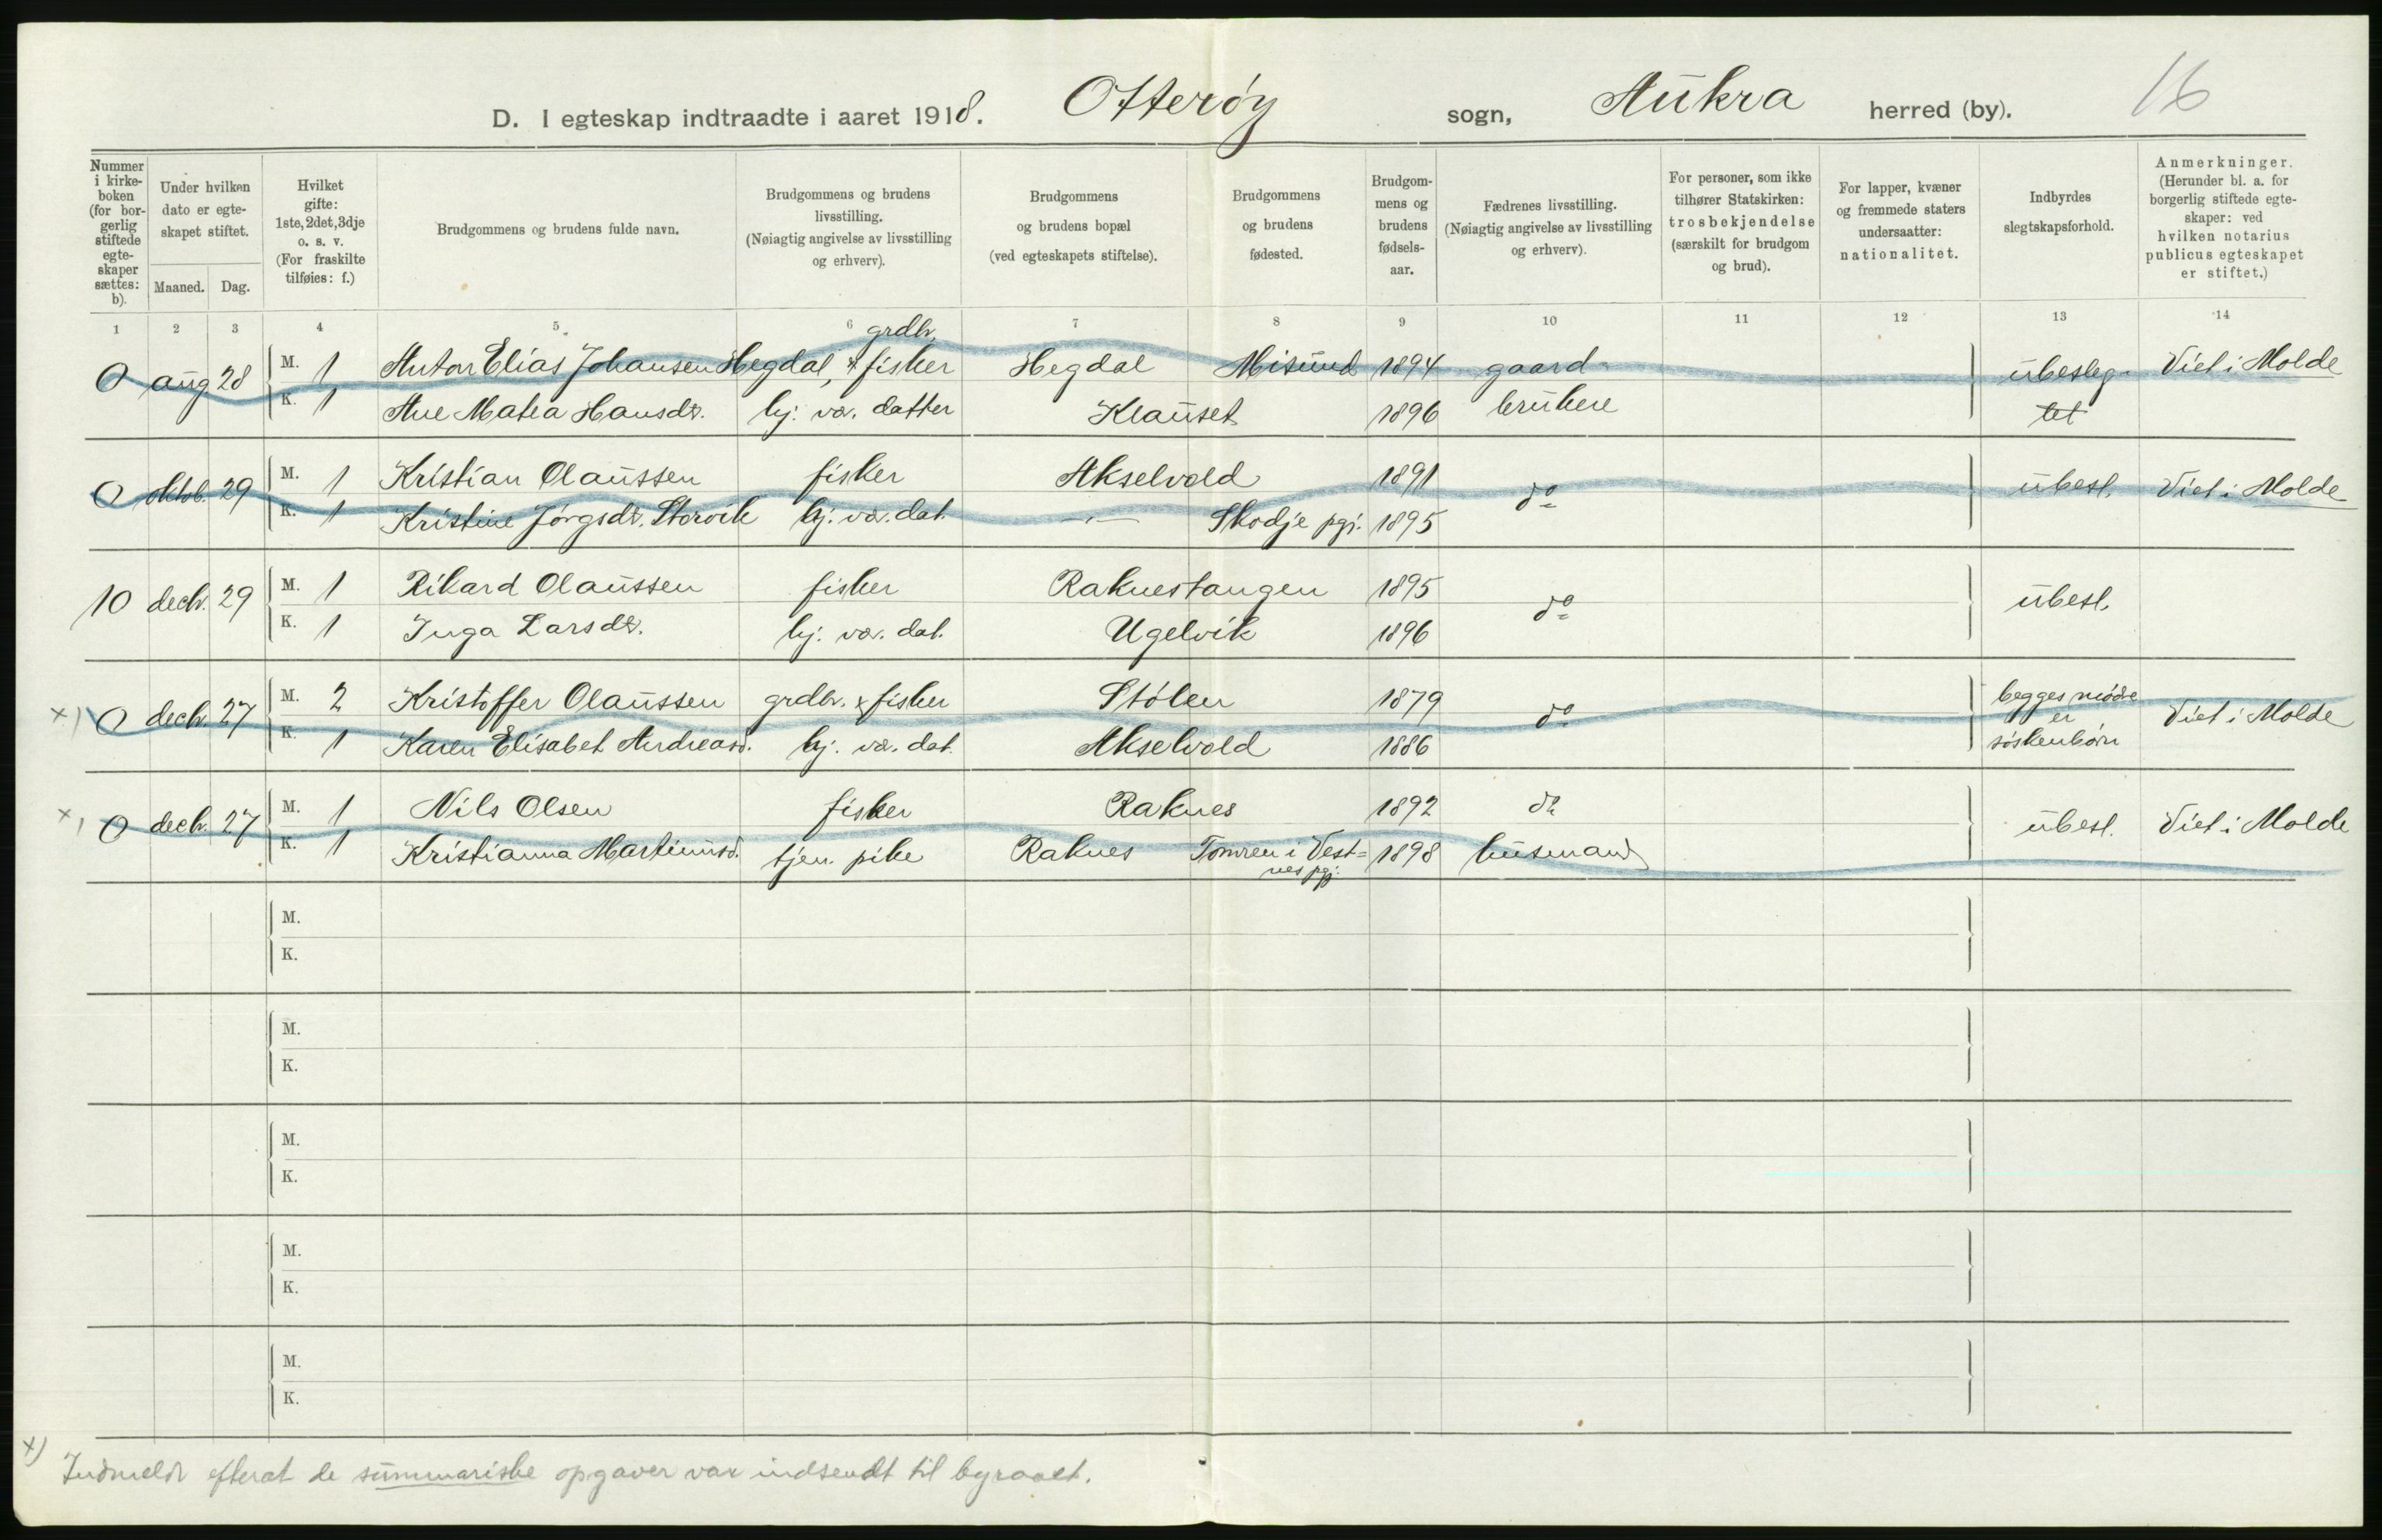 D. I egteskap indtraadte i aaret 1918. Otterøy sogn, Aukra herred (by). 16
Nummer i kirkeboken (for borgerlig stiftede egteskaper sættes: b).
Under hvilken dato er egteskapet stiftet.
Maaned. Dag.
Hvilket gifte: 1ste, 2det, 3dje o. s. v. (For fraskilte tilføies: f.)
Brudgommens og brudens fulde navn.
Brudgommens og brudens livsstilling. (Nøiagtig angivelse av livsstilling og erhverv).
Brudgommens og brudens bopæl (ved egteskapets stiftelse).
Brudgommens og brudens fødested.
Brudgommens og brudens fødselsaar.
Fædrenes livsstilling. (Nøiagtig angivelse av livsstilling og erhverv).
For personer, som ikke tilhører Statskirken: trosbekjendelse (særskilt for brudgom og brud).
For lapper, kvæner og fremmede staters undersaatter: nationalitet.
Indbyrdes slegtskapsforhold.
Anmerkninger. (Herunder bl. a. for borgerlig stiftede egteskaper: ved hvilken notarius publicus egteskapet er stiftet.)
1 2 3 4 5 6 7 8 9 10 11 12 13 14
grdbr.
0 aug. 28 M. 1 Anton Elias Johansen Hegdal, & fisker Hegdal Misund 1894 gaard ubesleg- Viet i Molde
K. 1 Ane Matea Hansdr. hj. vær. datter Klauset 1896 brukere tet
0 oktob. 29 M. 1 Kristian Olaussen fisker Akselvold 1891 do ubesl. Viet i Molde
K. 1 Kristine Jørgsdr. Storvik hj. vær. dat. —"— Skodje pgj. 1895
10 decbr. 29 M. 1 Rikard Olaussen fisker Raknestangen 1895 do ubesl.
K. 1 Inga Larsdr. hj. vær. dat. Ugelvik 1896
x) 0 decbr. 27 M. 2 Kristoffer Olaussen grdbr. & fisker Stølen 1879 do begges mødre er søskenbørn Viet i Molde
K. 1 Karen Elisabet Andreasd. hj. væ. dat. Akselvold 1886
x) 0 decbr. 27 M. 1 Nils Olsen fisker Raknes 1892 do ubesl. Viet i Molde
K. 1 Kristianna Martinusd. tjen. pike Raknes Tomren i Vest= 1898 husmand
nes pgj.
M.
K.
M.
K.
M.
K.
M.
K.
M.
K.
x) Indmeldt efterat de summariske opgaver var indsendt til byraaet.